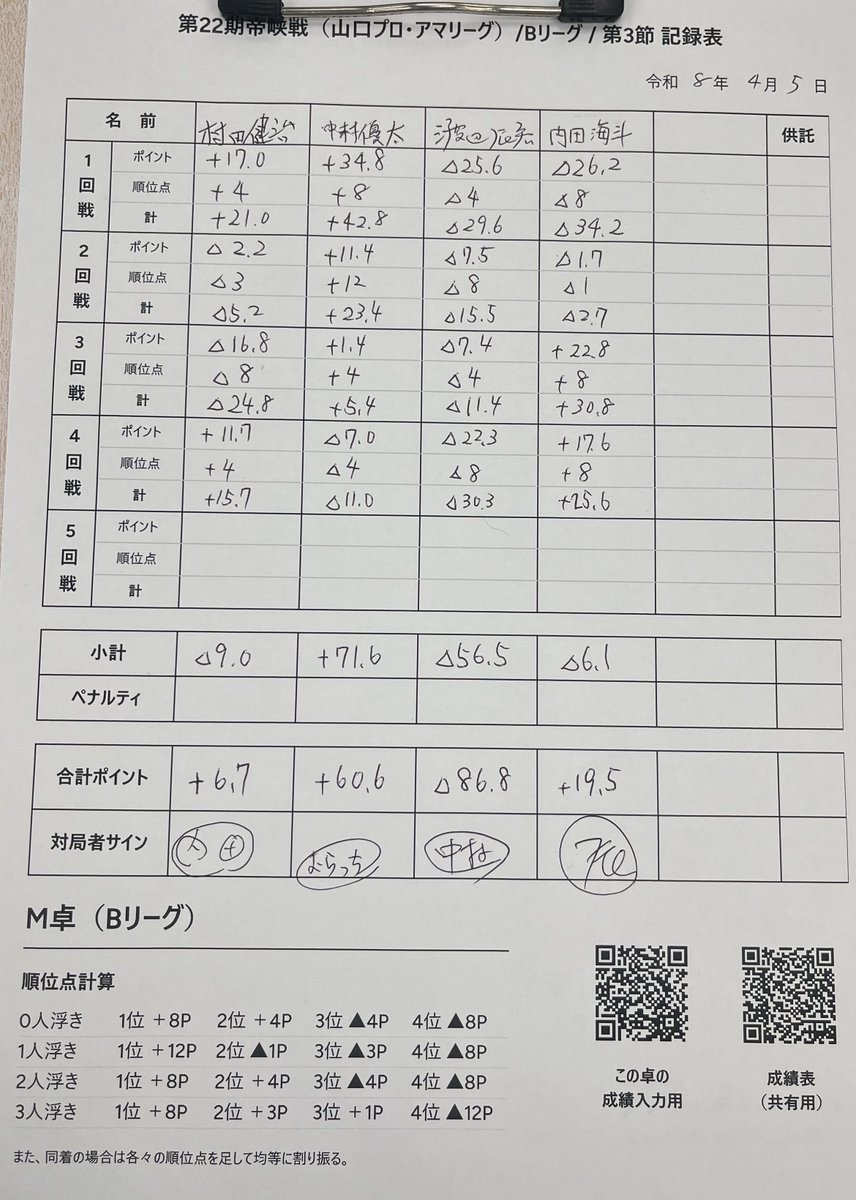 第22期帝峡戦（山口プロ・アマリーグ）/Bリーグ / 第3節 記録表
令和 8年 4月 5日
名 前 村田健治 中村優太 渡辺 内田海斗 供託
1回戦 ポイント +17.0 +34.8 △25.6 △26.2
順位点 +4 +8 △4 △8
計 +21.0 +42.8 △29.6 △34.2
2回戦 ポイント △2.2 +11.4 △7.5 △1.7
順位点 △3 +12 △8 △1
計 △5.2 +23.4 △15.5 △2.7
3回戦 ポイント △16.8 +1.4 △7.4 +22.8
順位点 △8 +4 △4 +8
計 △24.8 +5.4 △11.4 +30.8
4回戦 ポイント +11.7 △7.0 △22.3 +17.6
順位点 +4 △4 △8 +8
計 +15.7 △11.0 △30.3 +25.6
5回戦 ポイント
順位点
計
小計 △9.0 +71.6 △56.5 △6.1
ペナルティ
合計ポイント +6.7 +60.6 △86.8 +19.5
対局者サイン 内田 むらっち 中村
M卓（Bリーグ）
順位点計算
0人浮き 1位 +8P 2位 +4P 3位 ▲4P 4位 ▲8P
1人浮き 1位 +12P 2位 ▲1P 3位 ▲3P 4位 ▲8P
2人浮き 1位 +8P 2位 +4P 3位 ▲4P 4位 ▲8P
3人浮き 1位 +8P 2位 +3P 3位 +1P 4位 ▲12P
また、同着の場合は各々の順位点を足して均等に割り振る。
この卓の
成績入力用
成績表
（共有用）